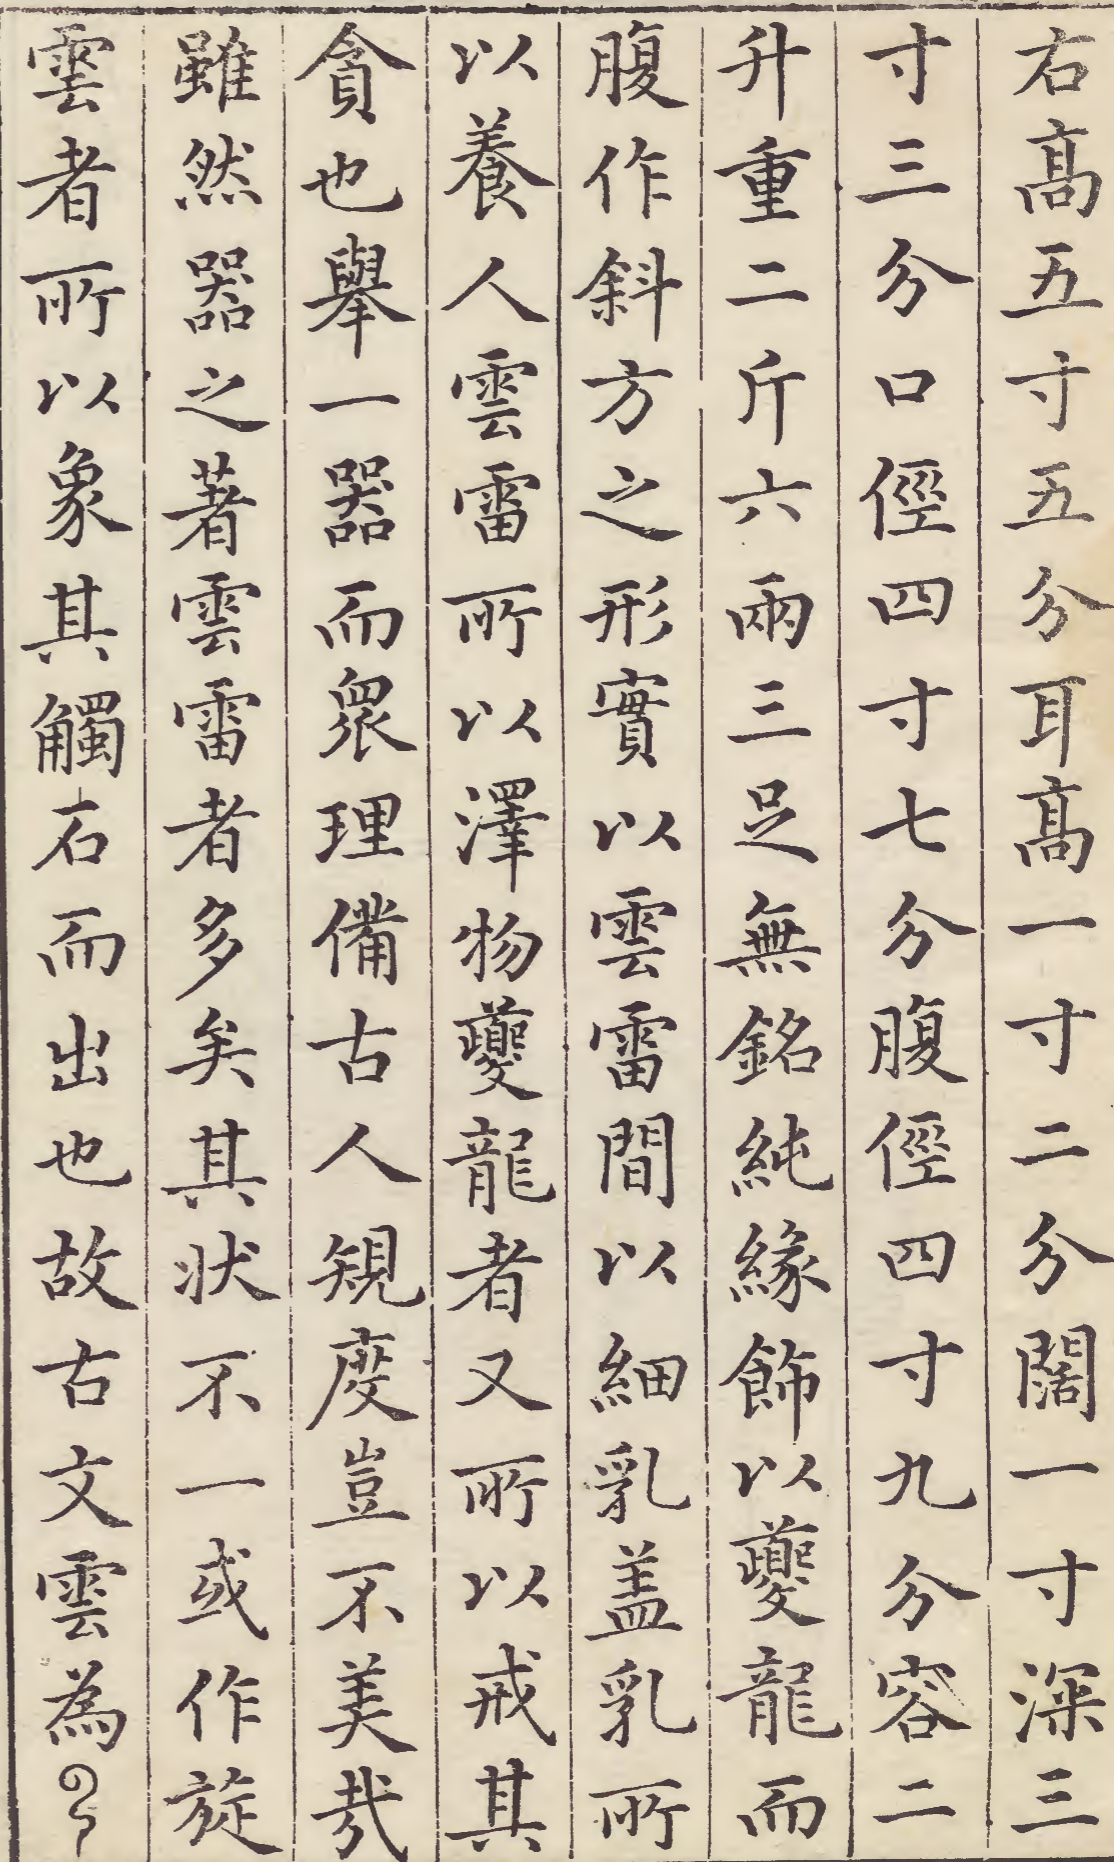 右髙五寸五分耳髙一寸二分闊一寸深三
寸三分口徑四寸七分腹徑四寸九分容二
升重二斤六兩三足無銘純緣飾以夔龍而
腹作斜方之形實以雲雷間以細乳盖乳所
以養人雲雷所以澤物夔龍者又所以戒其
貪也舉一器而衆理備古人規度豈不美哉
雖然器之著雲雷者多矣其狀不一或作旋
雲者所以象其觸石而出也故古文雲為